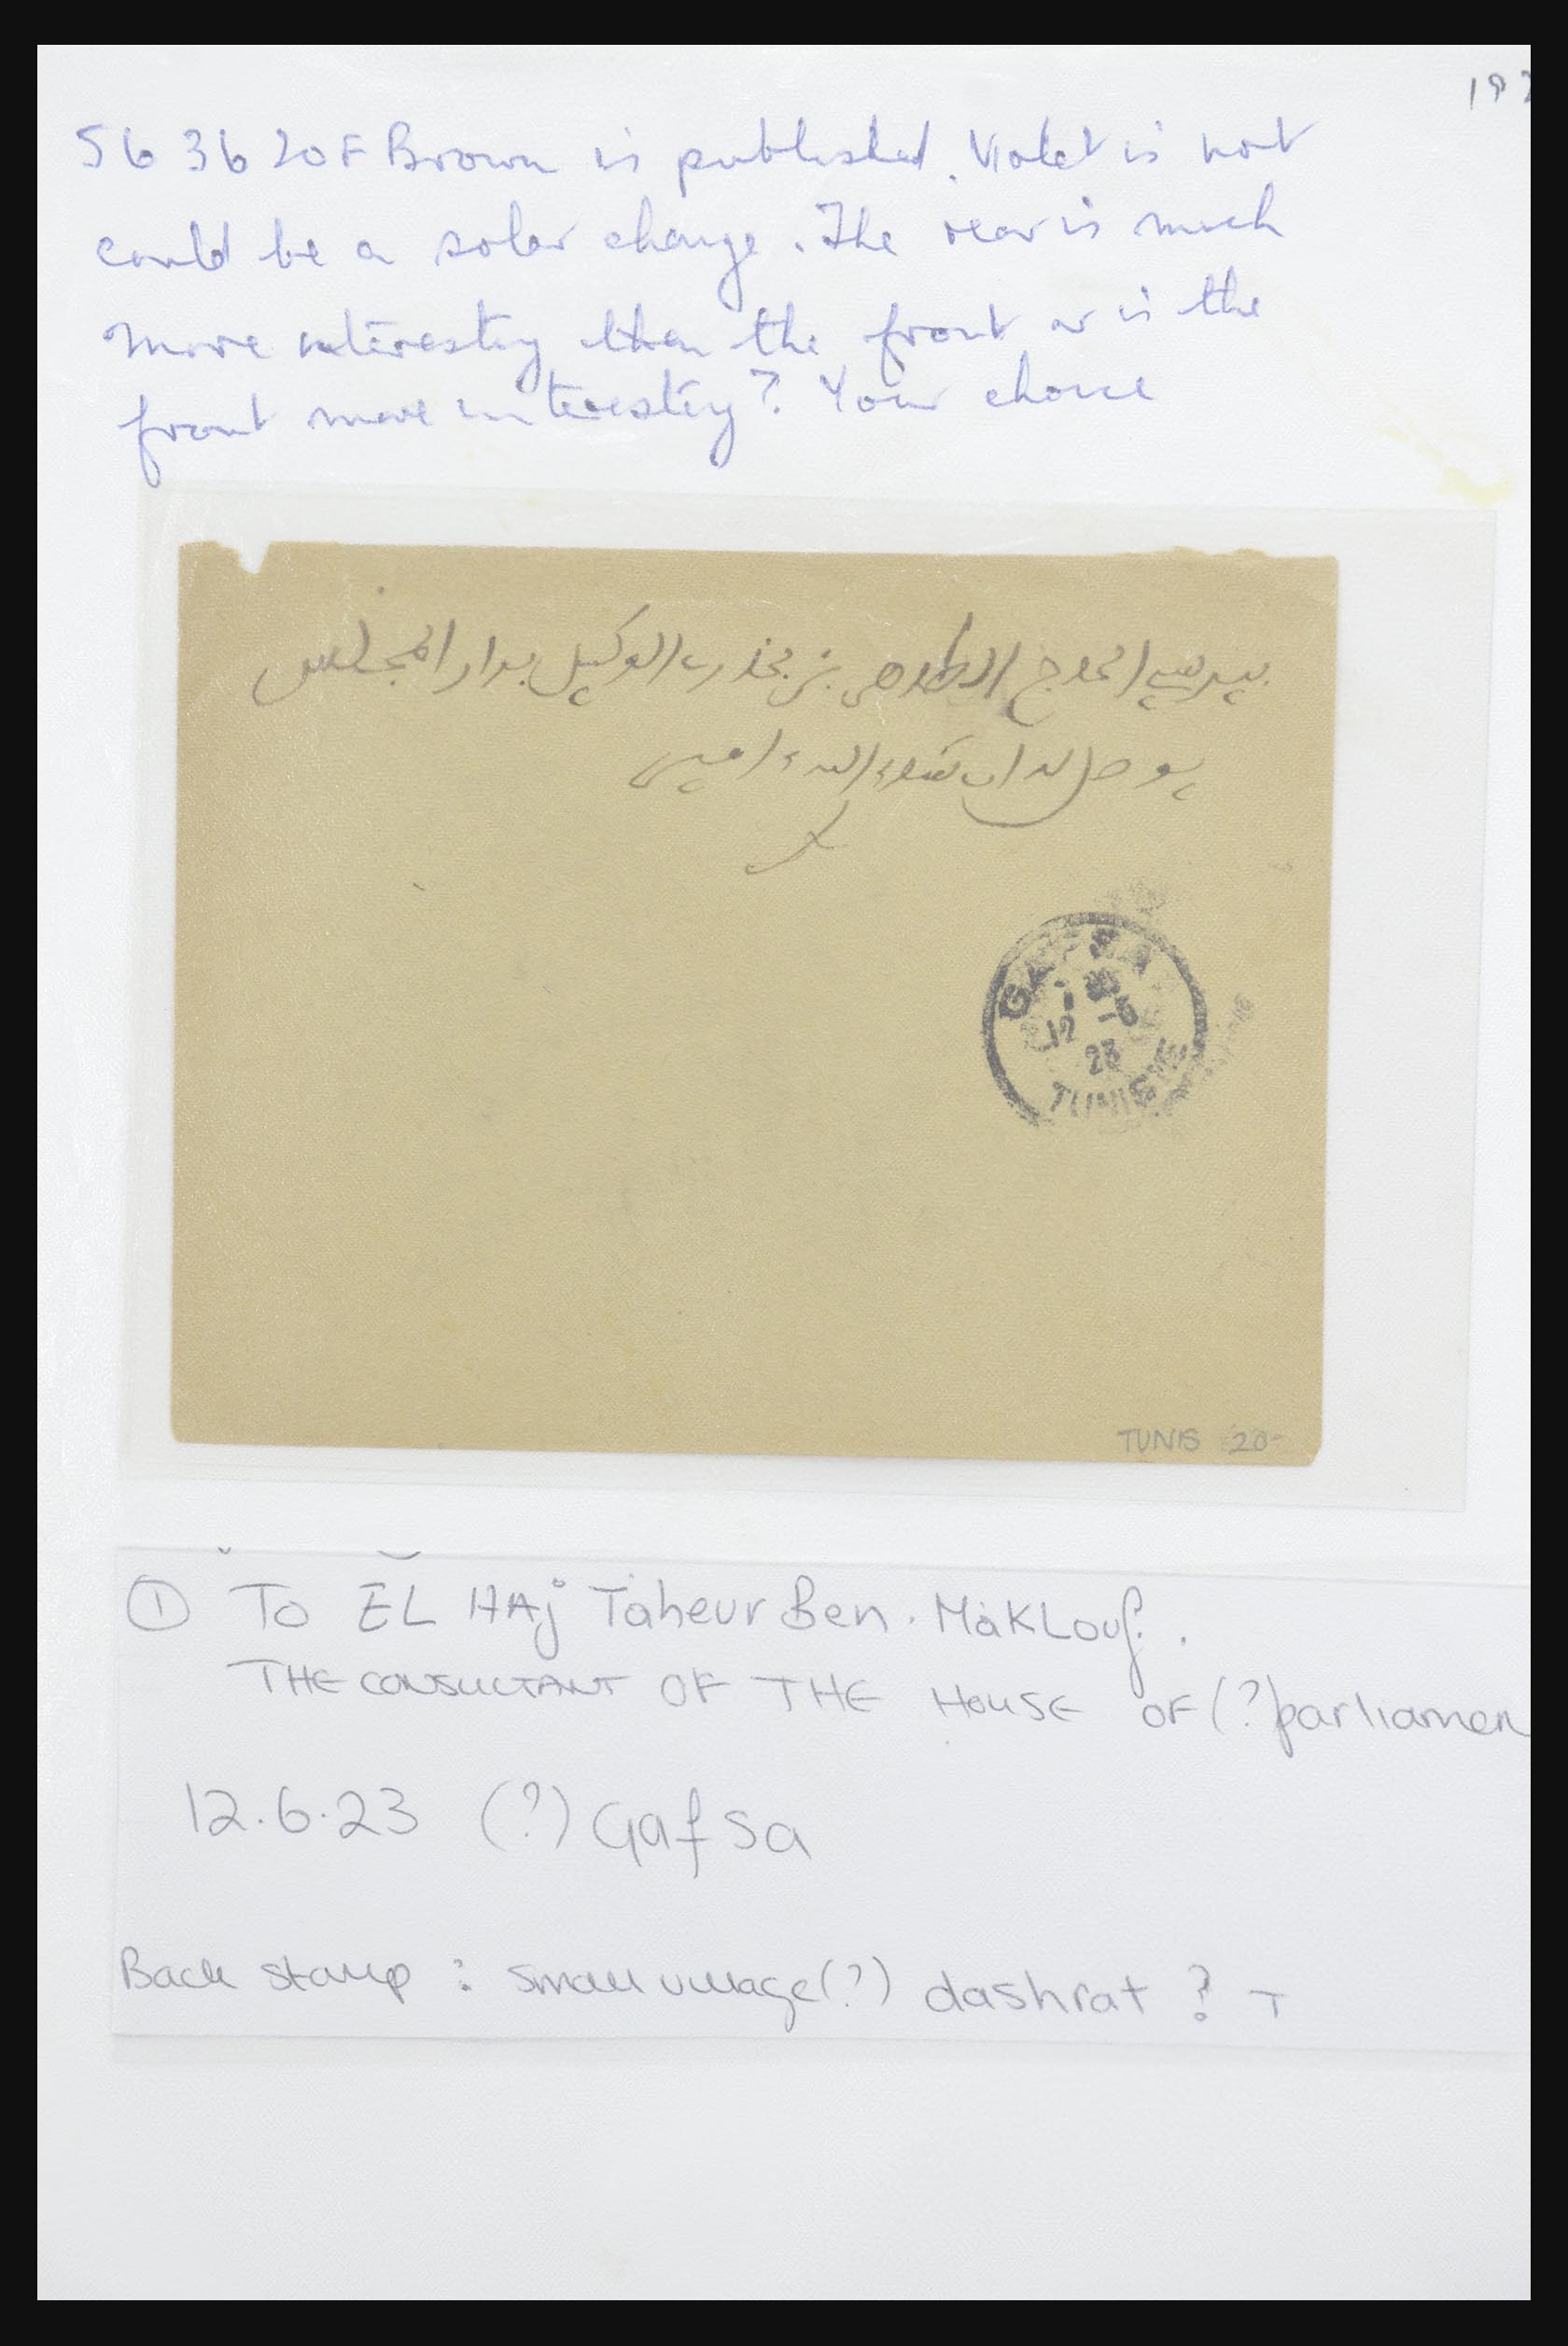 SG 36 20F Brown is published. Violet is not
could be a solar change. The rear is much
more interesting than the front or is the
front more interesting? Your choice
الحاج الطاهر بن الوكيل بدار المجلس
يوصل له ان شاء الله امين
GAFSA
12 -6
23
TUNISIE
TUNIS 20-
① To EL HAj Taheur Ben. MaKLouf.
THE CONSULTANT OF THE HOUSE OF (?) parliamen
12.6.23 (?) Gafsa
Back stamp : small village (?) dashrat ? T